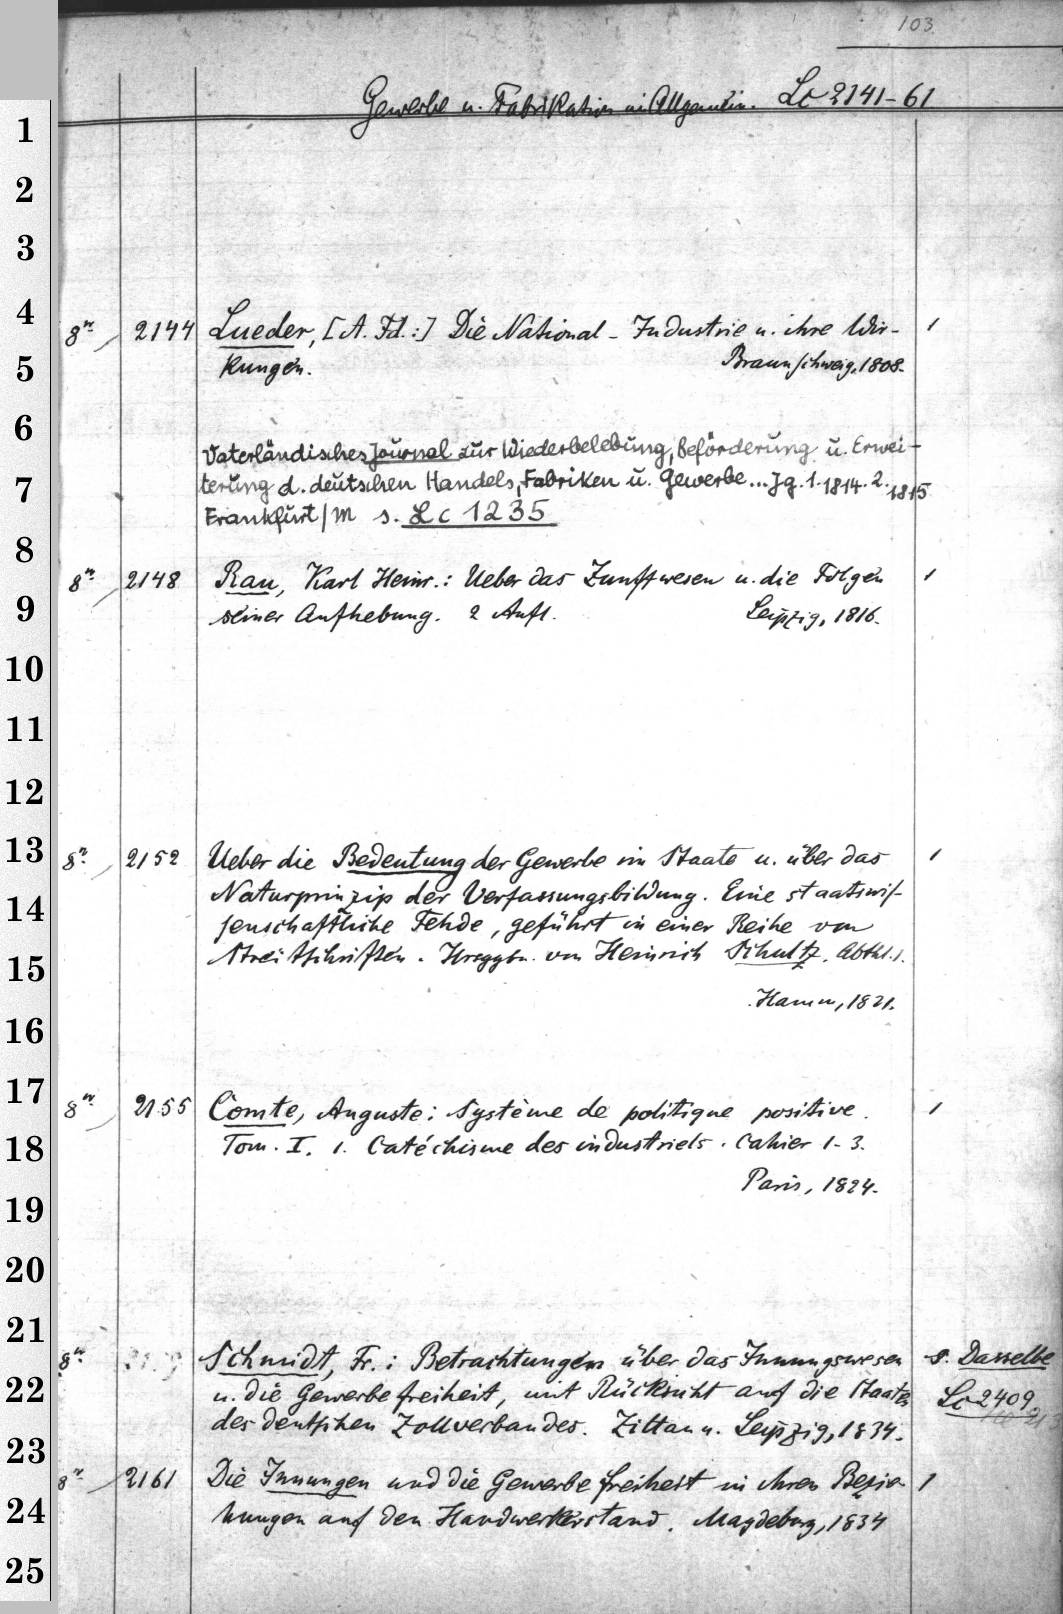 103
Gewerbe u. Fabrikation im Allgemein. Lc 2141-61
1
2
3
4
8° 2144 Lueder, [A. Fd.:] Die National-Industrie u. ihre Wir- 1
5
kungen. Braunschweig, 1808.
6
Vaterländisches Journal zur Wiederbelebung, Beförderung u. Erwei-
7
terung d. deutschen Handels, Fabriken u. Gewerbe... Jg. 1. 1814. 2. 1815
Frankfurt/M s. Lc 1235
8
8° 2148 Rau, Karl Heinr.: Ueber das Zunftwesen u. die Folgen 1
9
seiner Aufhebung. 2 Aufl. Leipzig, 1816.
10
11
12
13
8° 2152 Ueber die Bedeutung der Gewerbe im Staate u. über das 1
14
Naturprinzip der Verfassungsbildung. Eine staatswis-
senschaftliche Fehde, geführt in einer Reihe von
15
Streitschriften. Hrsggbn. von Heinrich Schultz. Abthl. 1.
16
Hamm, 1821.
17
8° 2155 Comte, Auguste: Système de politique positive. 1
18
Tom. I. 1. Catéchisme des industriels. Cahier 1-3.
19
Paris, 1824.
20
21
8° Schmidt, Fr.: Betrachtungen über das Innungswesen s. Dasselbe
22
u. die Gewerbefreiheit, mit Rücksicht auf die Staaten Lc 2409.
des deutschen Zollverbandes. Zittau u. Leipzig, 1834.
23
8° 2161 Die Innungen und die Gewerbefreiheit in ihren Bezie- 1
24
hungen auf den Handwerkerstand. Magdeburg, 1834
25